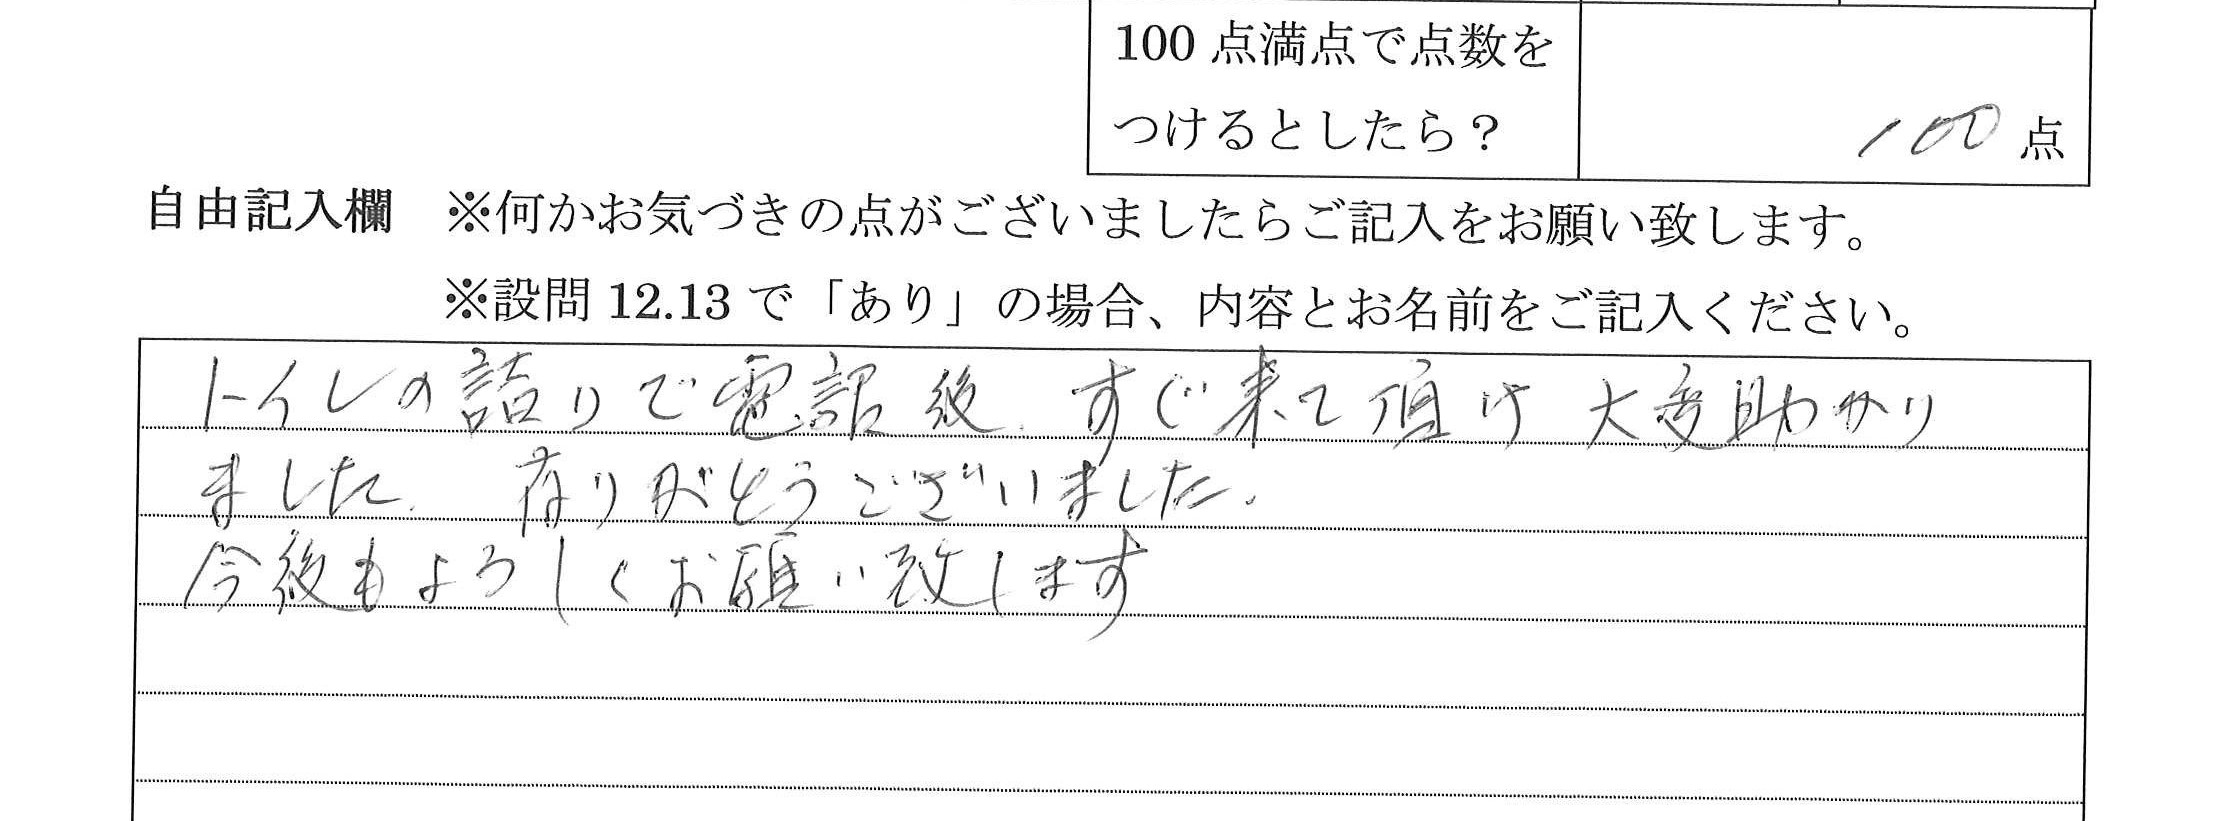 100 点満点で点数を
つけるとしたら？
100 点
自由記入欄 ※何かお気づきの点がございましたらご記入をお願い致します。
※設問 12.13 で「あり」の場合、内容とお名前をご記入ください。
トイレの詰りで電話後、すぐ来て頂け 大変助かり
ました。有りがとうございました。
今後もよろしくお願い致します